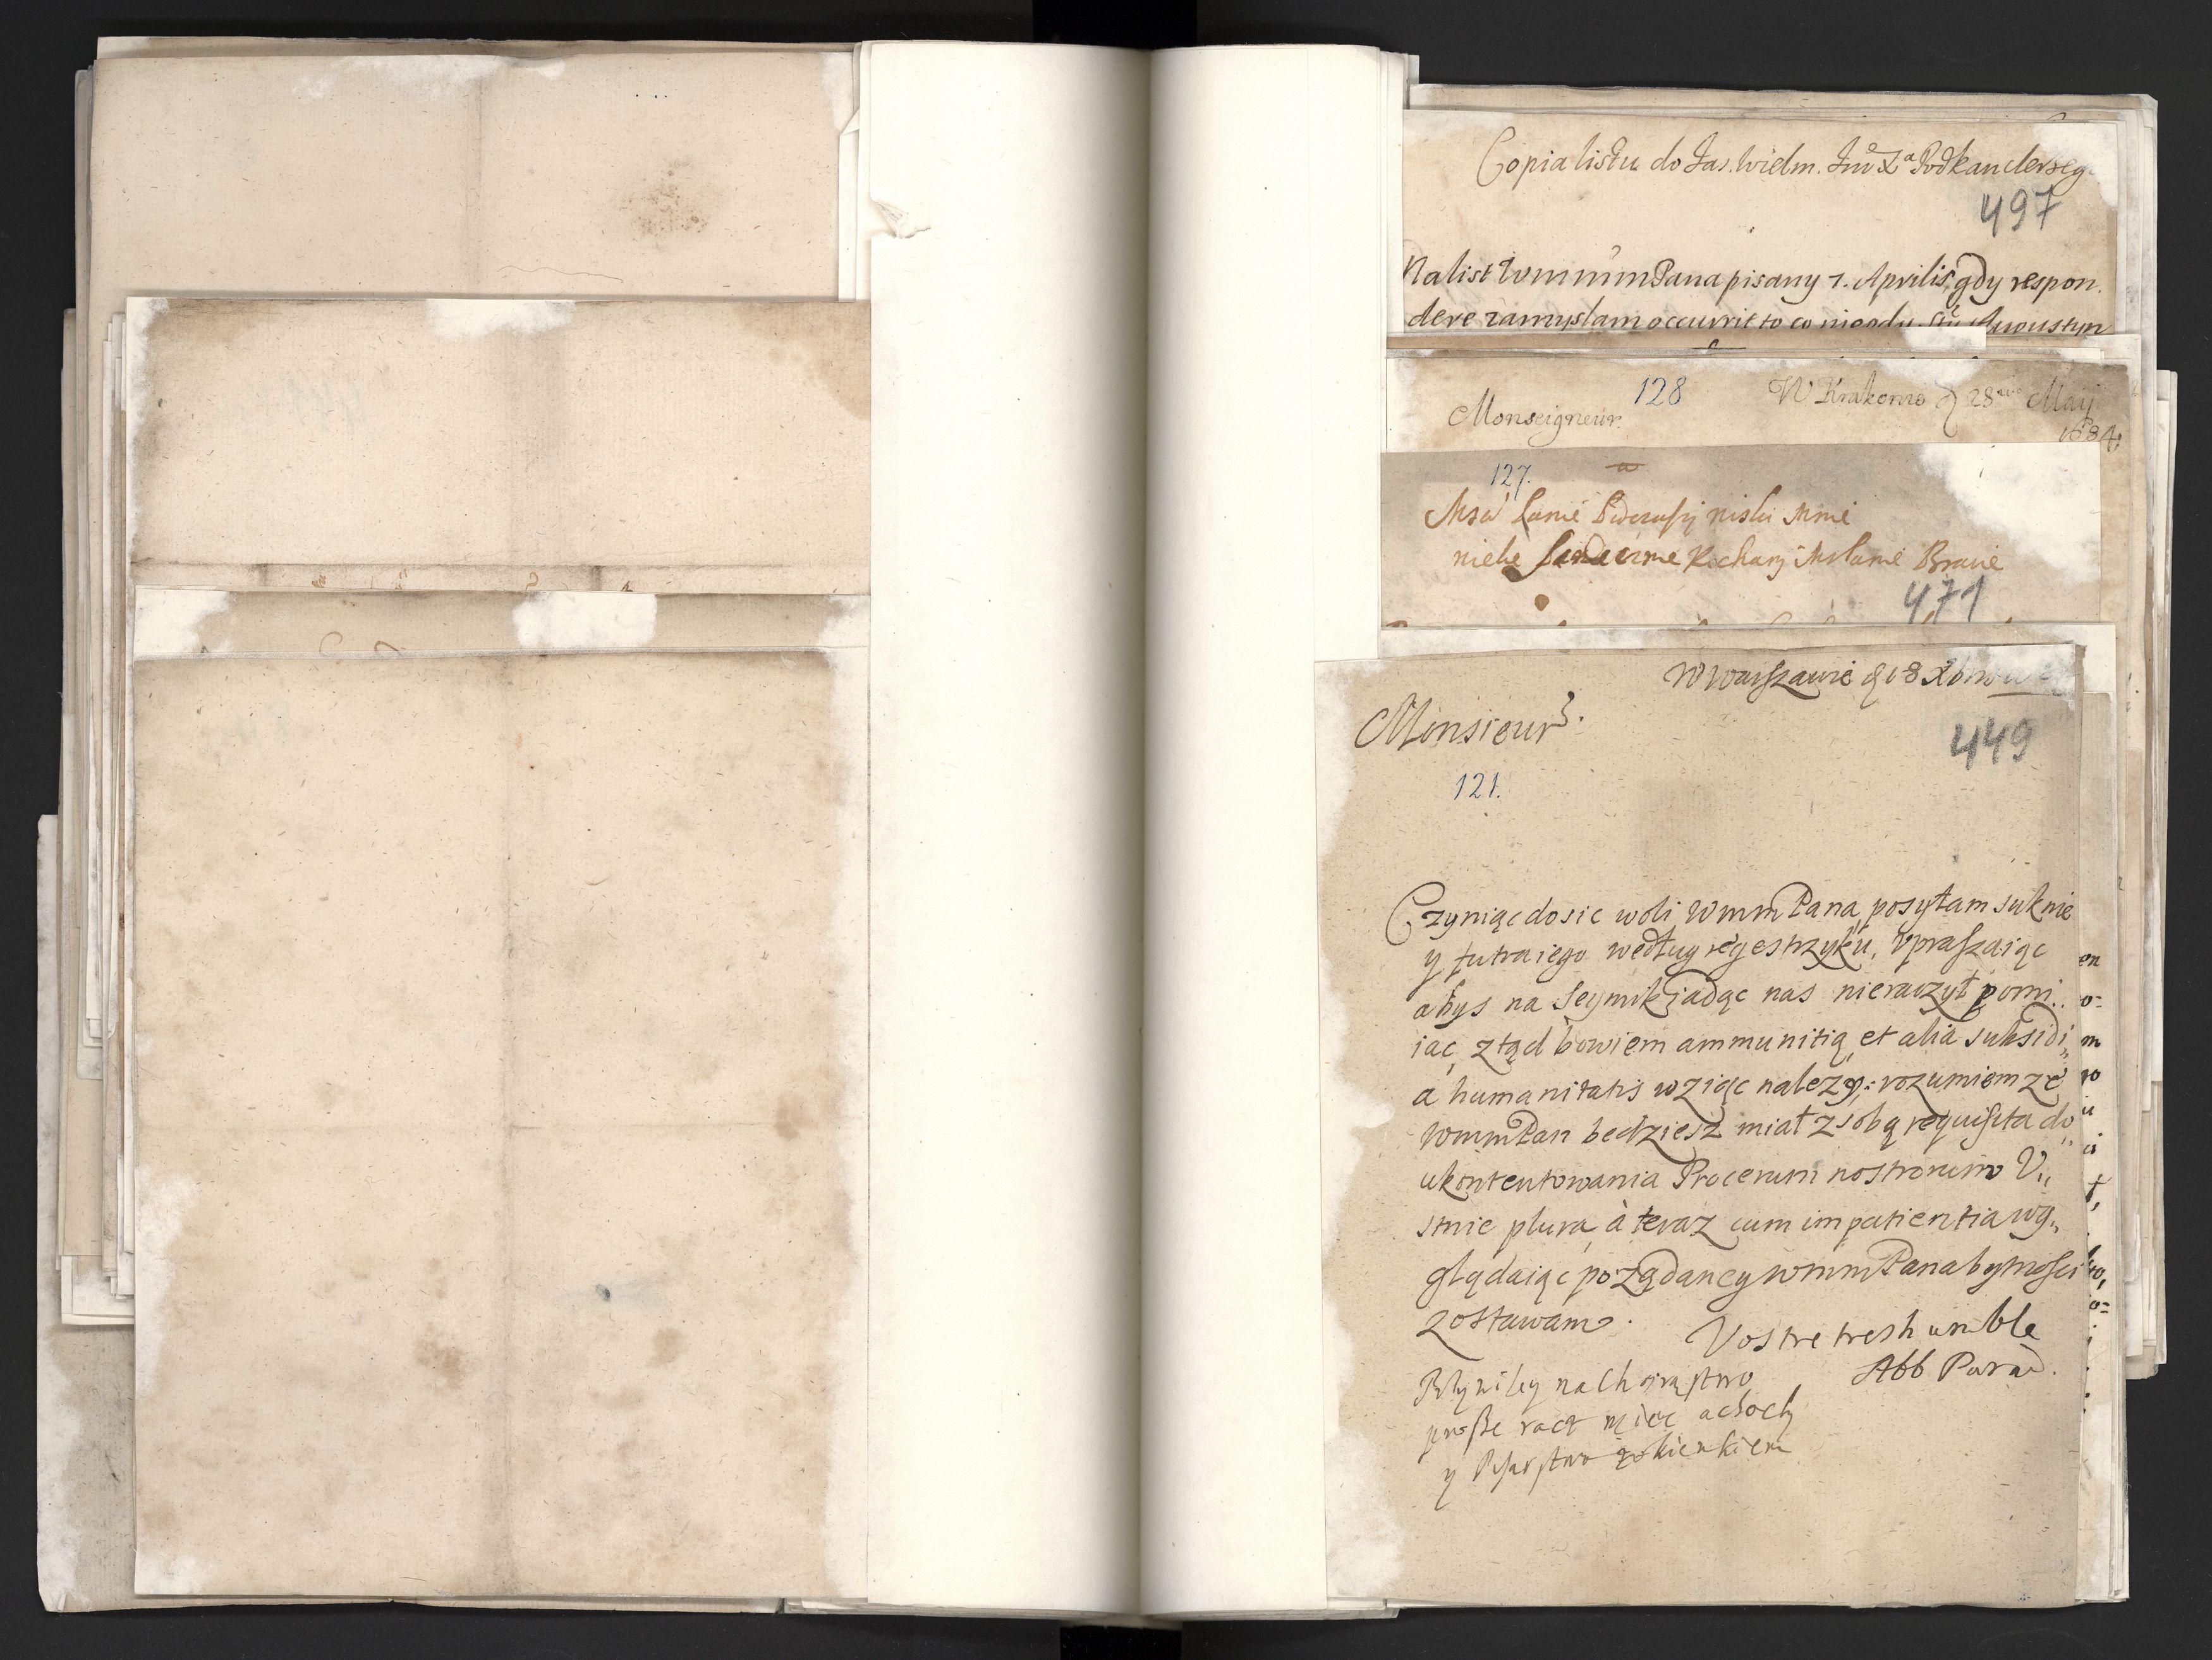 Copia listu do Jas. Wielm. Podkanclerzeg
497
Na list Wmmm Pana pisany 7. Aprilis, gdy respon.
dere zamyslam occurrit to co niegdy Augustyn
Monseigneur.
128
W Krakowie 28 May
1684
127.
Kochany Bracie
471
W Warszawie 18
Monsieur.
449
121.
Czyniąc dosic woli Wmm Pana, posyłam suknie
y futra iego według regestrzyku, upraszaiąc
abys na Seymik jadąc nas nieraczył pomi„
iac, ztąd bowiem ammunitią, et alia subsidi„
a humanitatis wziąc nalezy: rozumiem ze
Wmm Pan będziesz miał z sobą requisita do„
ukontentowania Procerum nostrorum V„
stnie plura, à teraz cum impatientia wy„
glądaiąc poządaney Wmm Pana bytnosci
zostawam.
Vostre tresh umble
Abb Parad.
na Chorąstwo
prosze racz miec
y Pisarstwo